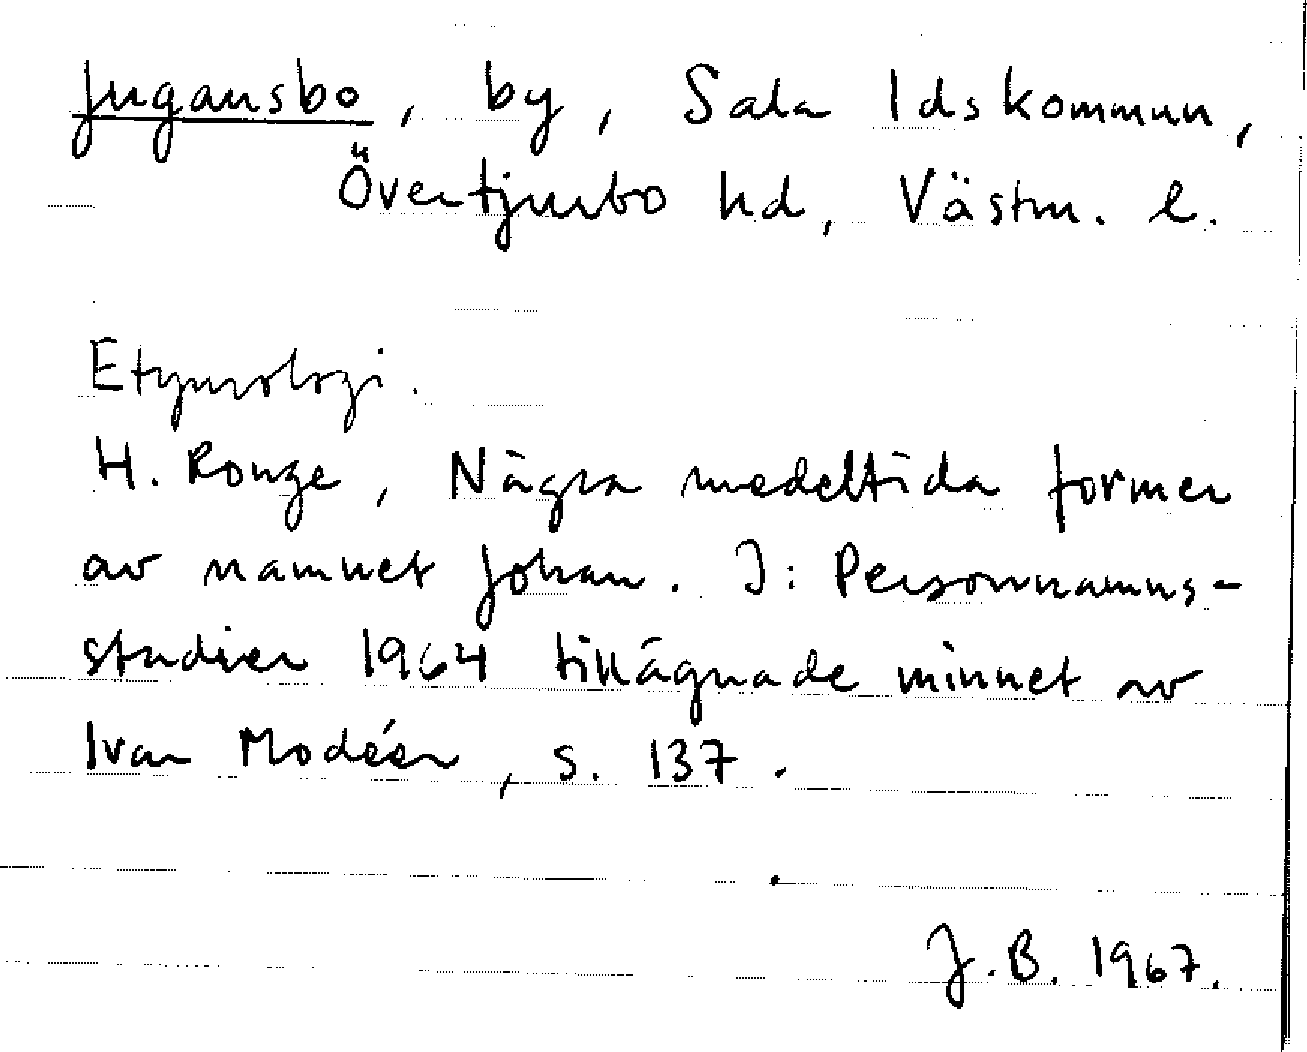 Jugansbo, by, Sala ldskommun,
Övertjurbo hd, Västm. l.
Etymologi.
H. Ronge, Några medeltida former
av namnet Johan. I: Personnamns-
studier 1964 tillägnade minnet av
Ivar Modéer, s. 137.
J.B. 1967.